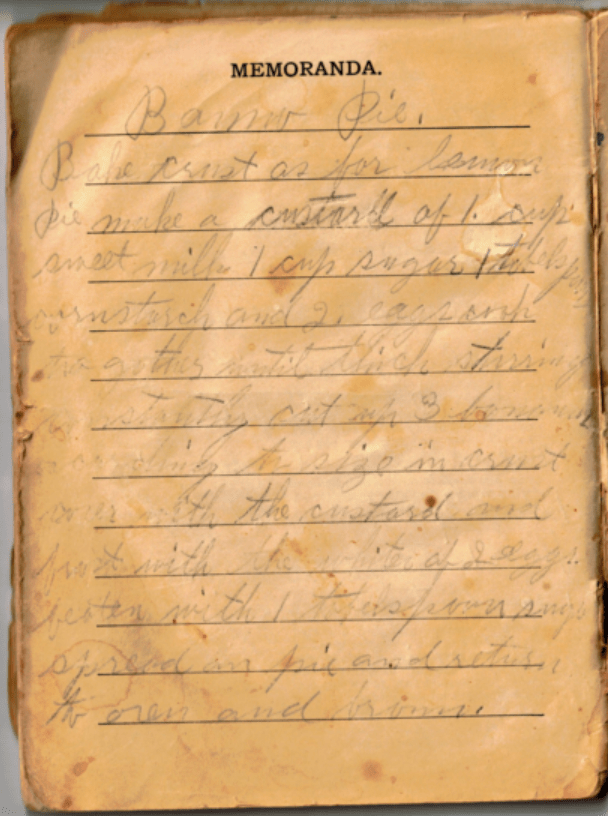 MEMORANDA.
Banno Pie.
Bake crust as for lemon
Pie make a custard of 1. cup
sweet milk 1 cup sugar 1 tabelspoon
cornstarch and 2. eggs cook
to gother until thick stirring
constantly cut up 3 bananas
according to size in crust
cover with the custard and
frost with the white of 2 eggs.
beaten with 1 tabelspoon sugar
spread on pie and return
to oven and brown.